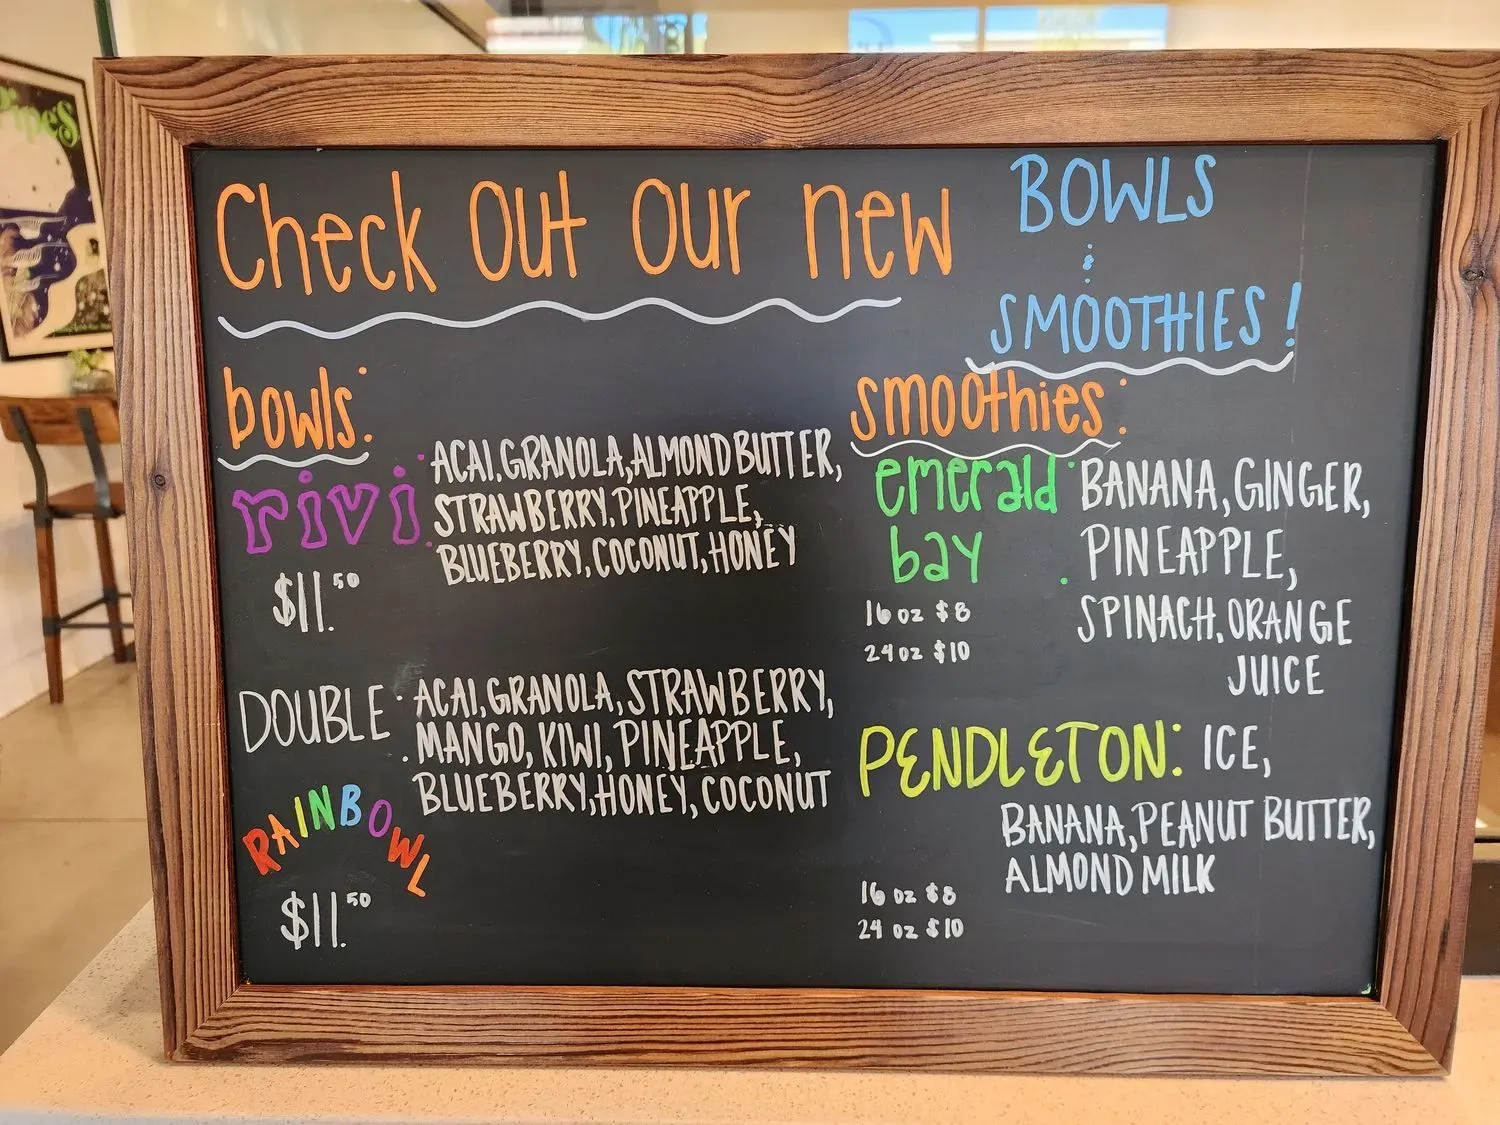 Pipes
Check Out Our new
BOWLS
&
SMOOTHIES!
bowls:
rivi: ACAI, GRANOLA, ALMOND BUTTER,
STRAWBERRY, PINEAPPLE,
BLUEBERRY, COCONUT, HONEY
$11.50
DOUBLE: ACAI, GRANOLA, STRAWBERRY,
MANGO, KIWI, PINEAPPLE,
BLUEBERRY, HONEY, COCONUT
RAINBOWL
$11.50
smoothies:
emerald: BANANA, GINGER,
bay PINEAPPLE,
16 oz $8 SPINACH, ORANGE
24 oz $10 JUICE
PENDLETON: ICE,
BANANA, PEANUT BUTTER,
ALMOND MILK
16 oz $8
24 oz $10